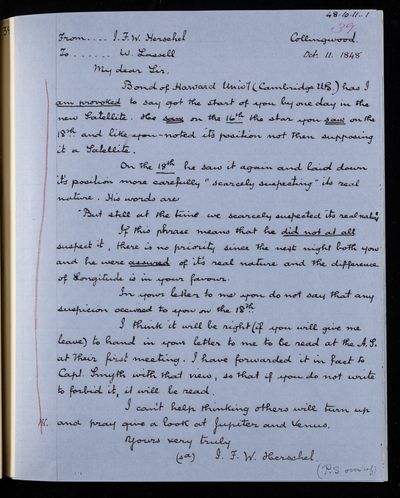 48-10-11-1
39
From.... J. F. W. Herschel Collingwood.
To...... W. Lassell Oct. 11. 1848
My dear Sir,
Bond of Harward Univ'y (Cambridge U.S.) has I
am provoked to say got the start of you by one day in the
new Satellite. He saw on the 16th the star you saw on the
18th and like you - noted its position not then supposing
it a Satellite.
On the 18th he saw it again and laid down
its position more carefully "scarcely suspecting" its real
nature. His words are
"But still at the time we scarcely suspected its real nature"
If this phrase means that he did not at all
suspect it, there is no priority since the next night both you
and he were assured of its real nature and the difference
of Longitude is in your favour.
In your letter to me you do not say that any
suspicion occurred to you on the 18th.
I think it will be right (if you will give me
leave) to hand in your letter to me to be read at the A.S.
at their first meeting. I have forwarded it in fact to
Capt. Smyth with that view, so that if you do not write
to forbid it, it will be read.
I can't help thinking others will turn up
and pray give a look at Jupiter and Venus.
Yours very truly
(sd) J. F. W. Herschel.
(P.S omitted)